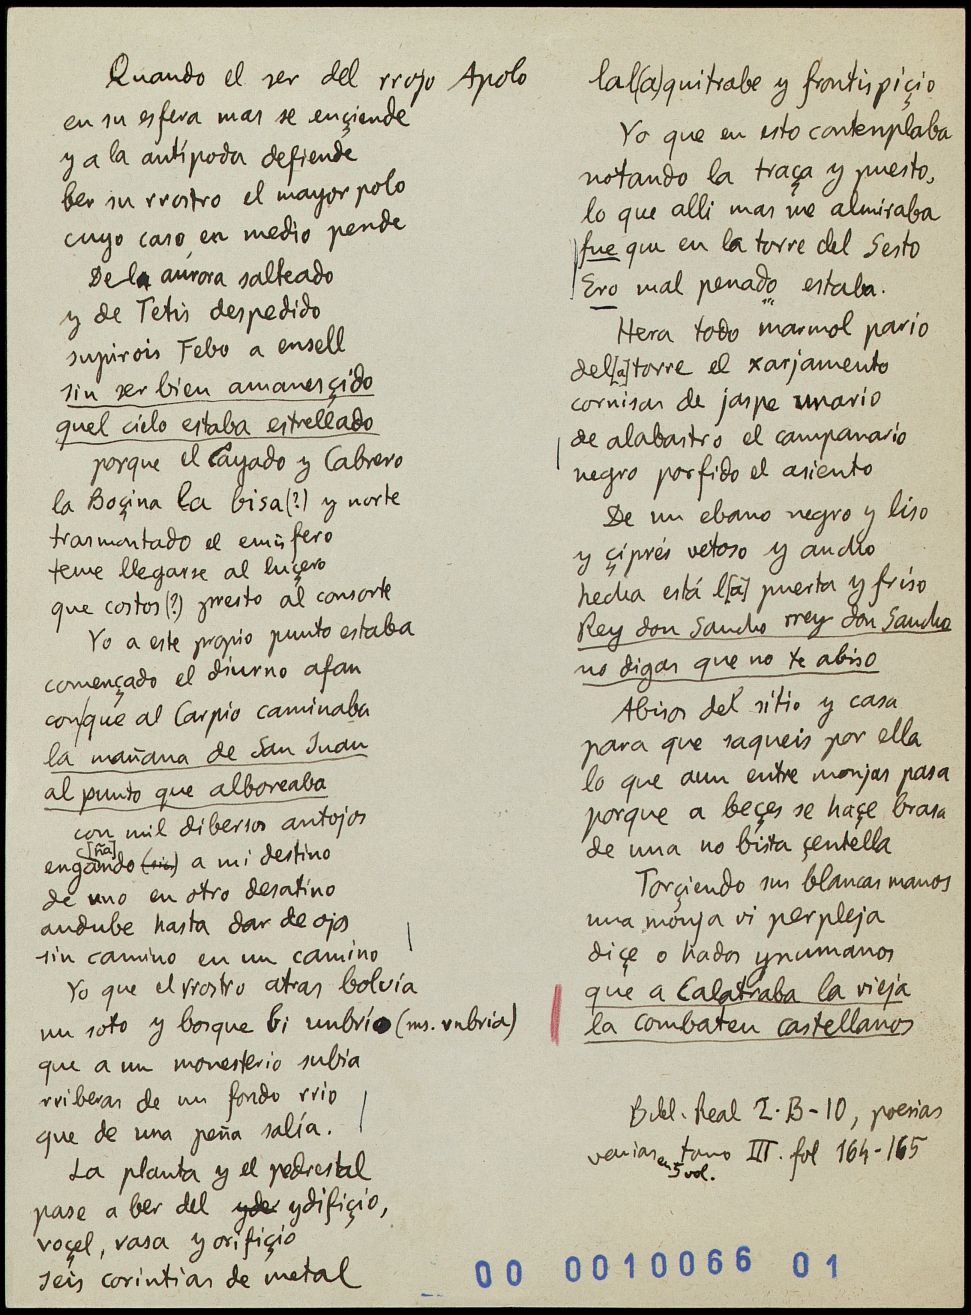 Quando el ser del rrojo Apolo
en su esfera mas se ençiende
y a la antípoda defiende
ber su rrostro el mayor polo
cuyo caso en medio pende
De la aurora salteado
y de Tetis despedido
supirois Febo a ensell
sin ser bien amanesçido
quel cielo estaba estrellado
porque el Cayado y Cabrero
la Boçina la bisa(?) y norte
trasmontado el emisfero
teme llegarse al luçero
que costos(?) presto al consorte
Yo a este propio punto estaba
començado el diurno afan
con/que al Carpio caminaba
la mañana de San Juan
al punto que alboreaba
con mil dibersos antojos
[ña]
engando (sic) a mi destino
de uno en otro desatino
andube hasta dar de ojos
sin camino en un camino
Yo que el rrostro atras bolvía
un soto y bosque bi unbrío (ms. vnbria)
que a un monesterio subia
rriberas de un fondo rrio
que de una peña salía.
La planta y el pedrestal
pase a ber del yde ydifiçio,
voçel, vasa y orifiçio
seis corintias de metal
lal(a)quitrabe y frontispiçio
Yo que en esto contenplaba
notando la traça y puesto,
lo que alli mas me almiraba
fue que en la torre del Sesto
Ero mal penado estaba.
Hera todo marmol pario
del[a] torre el xarjamento
cornisas de jaspe unario
de alabastro el campanario
negro porfido el asiento
De un ebano negro y liso
y çiprés vetoso y ancho
hecha está l[a] puerta y friso
Rey don Sancho rrey don Sancho
no digas que no te abiso
Abisos del sitio y casa
para que saqueis por ella
lo que aun entre monjas pasa
porque a beçes se haçe brasa
de una no bista çentella
Torçiendo sus blancas manos
una monja vi perpleja
diçe o hados ynumanos
que a Calatraba la vieja
la combaten castellanos
Bibl. Real 2-B-10, poesias
varias en 5 vol. tomo III. fol 164-165
00 0010066 01